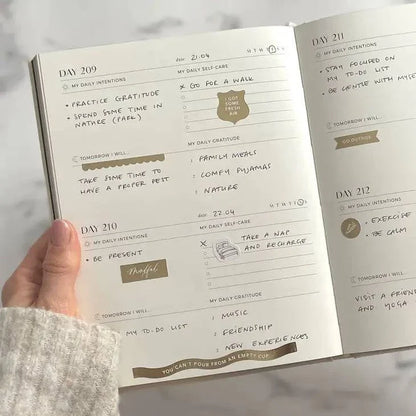 DAY 209
date: 21.04
M T W T F S S
MY DAILY INTENTIONS
• PRACTICE GRATITUDE
• SPEND SOME TIME IN
NATURE (PARK)
MY DAILY SELF-CARE
X GO FOR A WALK
I GOT
SOME
FRESH
AIR
TOMORROW I WILL...
TAKE SOME TIME TO
HAVE A PROPER REST
MY DAILY GRATITUDE
1 FAMILY MEALS
2 COMFY PYJAMAS
3 NATURE
DAY 210
date: 22.04
MY DAILY INTENTIONS
• BE PRESENT
Mindful
MY DAILY SELF-CARE
X TAKE A NAP
AND RECHARGE
TOMORROW I WILL...
MY TO-DO LIST
MY DAILY GRATITUDE
1 MUSIC
2 FRIENDSHIP
3 NEW EXPERIENCES
YOU CAN'T POUR FROM AN EMPTY CUP
DAY 211
MY DAILY INTENTIONS
• STAY FOCUSED ON
MY TO-DO LIST
• BE GENTLE WITH
TOMORROW I WILL...
GO OUTSIDE
DAY 212
MY DAILY INTENTIONS
• EXERCISE
• BE CALM
TOMORROW I WILL...
VISIT A FRIEND
AND YOGA